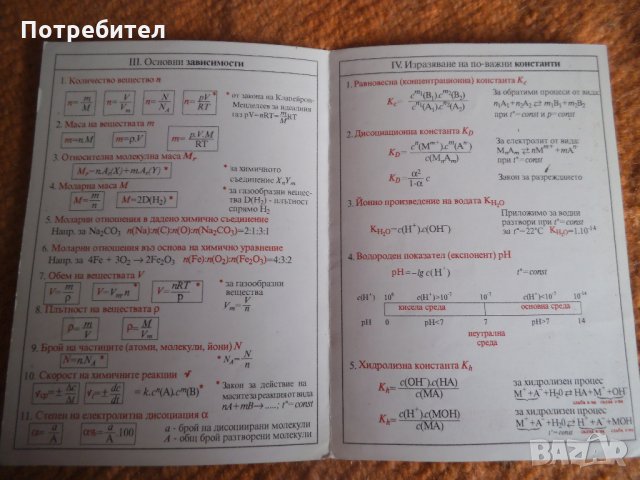 Потребител
III. Основни зависимости
1. Количество вещество n
n= m/M n= V/Vm n= N/NA * n= pV/RT *
* от закона на Клапейрон-
Менделеев за идеалния
газ pV=nRT= m/M RT
2. Маса на веществата m
m=n.M m=ρ.V m= p.V.M/RT *
3. Относителна молекулна маса Mr
Mr=nAr(X)+m.Ar(Y) *
* за химичното
съединение XnYm
4. Моларна маса M
M= m/n M=2D(H2) *
* за газообразни вещес-
тва D(H2) - плътност
спрямо H2
5. Моларни отношения в дадено химично съединение
Напр. за Na2CO3 n(Na):n(C):n(O):n(Na2CO3)=2:1:3:1
6. Моларни отношения въз основа на химично уравнение
Напр. за 4Fe + 3O2 → 2Fe2O3 n(Fe):n(O2):n(Fe2O3)=4:3:2
7. Обем на веществата V
V= m/ρ V=Vm.n * V= nRT/p *
* за газообразни
вещества
Vm= V/n
8. Плътност на веществата ρ
ρ= m/V ρ= M/Vm *
9. Брой на частиците (атоми, молекули, йони) N
N=n.NA * * NA= N/n
10. Скорост на химичните реакции v
vср=± Δc/Δt vt=± dc/dt = k.cⁿ(A).cᵐ(B) *
* Закон за действие на
масите за реакция от вида
nA+mB→ .....; t°=const
11. Степен на електролитна дисоциация α
α= a/A α%= a/A .100
a - брой на дисоциирани молекули
A - общ брой разтворени молекули
IV. Изразяване на по-важни константи
1. Равновесна (концентрационна) константа Kc
Kc= cᵐ¹(B1).cᵐ²(B2)/cⁿ¹(A1).cⁿ²(A2)
За обратими процеси от вида:
n1A1+n2A2⇄m1B1+m2B2
при t°=const и p=const
2. Дисоциационна константа KD
KD= cⁿ(Mᵐ⁺).cᵐ(Aⁿ⁻)/c(MnAm)
За електролит от вида:
MnAm⇄nMᵐ⁺+mAⁿ⁻
при t°=const
KD= α²/1-α c Закон за разреждането
3. Йонно произведение на водата KH2O
KH2O=c(H⁺).c(OH⁻)
Приложимо за водни
разтвори при t°=const
за t°=22°C KH2O=1.10⁻¹⁴
4. Водороден показател (експонент) pH
pH=-lg c(H⁺) t°=const
c(H⁺) 10⁰ c(H⁺)>10⁻⁷ 10⁻⁷ c(H⁺)<10⁻⁷ 10⁻¹⁴
кисела среда основна среда
pH 0 pH<7 7 pH>7 14
неутрална
среда
5. Хидролизна константа Kh
Kh= c(OH⁻).c(HA)/c(MA)
за хидролизен процес
M⁺+A⁻+H2O⇄HA+M⁺+OH⁻
Kh= c(H⁺).c(MOH)/c(MA)
за хидролизен процес
M⁺+A⁻+H2O⇄H⁺+A⁻+MOH
t°=const
BAZAR